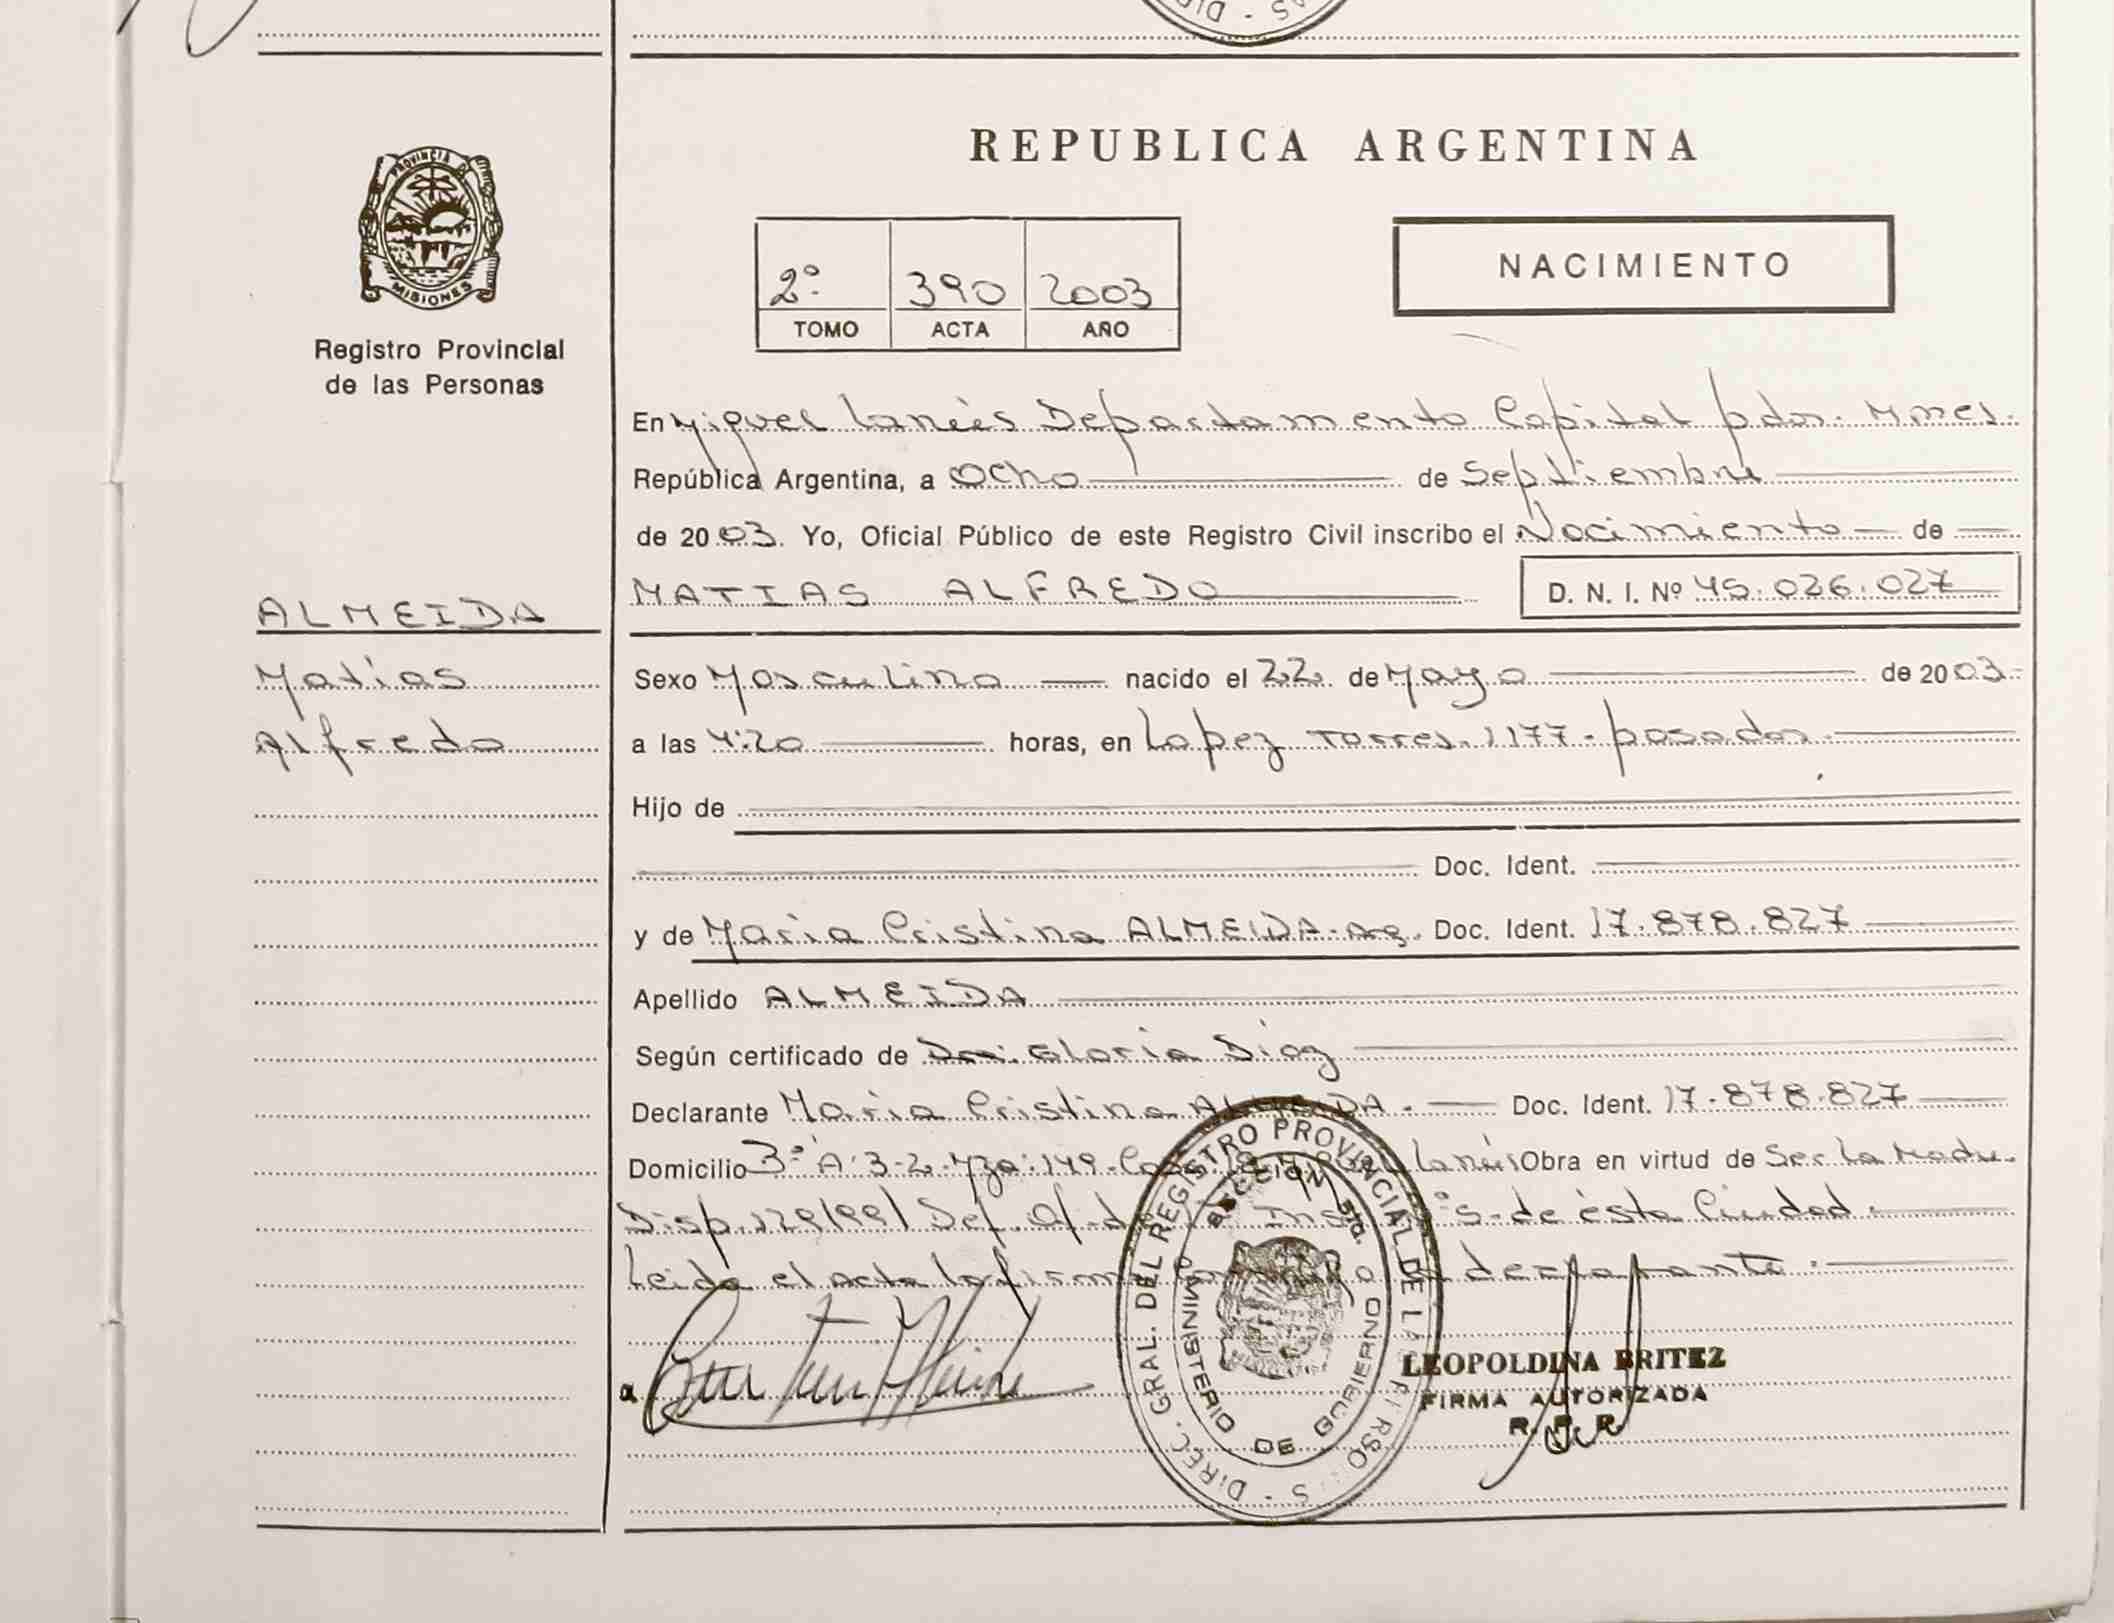 REPUBLICA ARGENTINA
PROVINCIA DE
MISIONES
Registro Provincial
de las Personas
2º 390 2003
TOMO ACTA AÑO
NACIMIENTO
En Miguel Lanús Departamento Capital pdas. Mnes.
República Argentina, a Ocho de Septiembre
de 2003. Yo, Oficial Público de este Registro Civil inscribo el Nacimiento de
ALMEIDA
MATIAS ALFREDO D. N. I. Nº 45.026.027
Matías
Sexo Masculino nacido el 22 de Mayo de 2003
Alfredo
a las 4:20 horas, en Lopez Torres 1177 - posadas.
Hijo de
Doc. Ident.
y de Maria Cristina ALMEIDA - Arg. Doc. Ident. 17.878.827
Apellido ALMEIDA
Según certificado de Dra. Gloria Diaz
Declarante Maria Cristina ALMEIDA. Doc. Ident. 17.878.827
Domicilio 3º A: 3-2. Mza: 149. Casa Lanús Obra en virtud de Ser La Madre.
Disp. 129/99 / Def. Of. de Inst. de ésta Ciudad.
Leida el acta la firma
LEOPOLDINA BRITEZ
FIRMA AUTORIZADA
R. P. P.
DIREC. GRAL. DEL REGISTRO PROVINCIAL DE LAS PERSONAS
SECCION 5ta.
MINISTERIO DE GOBIERNO